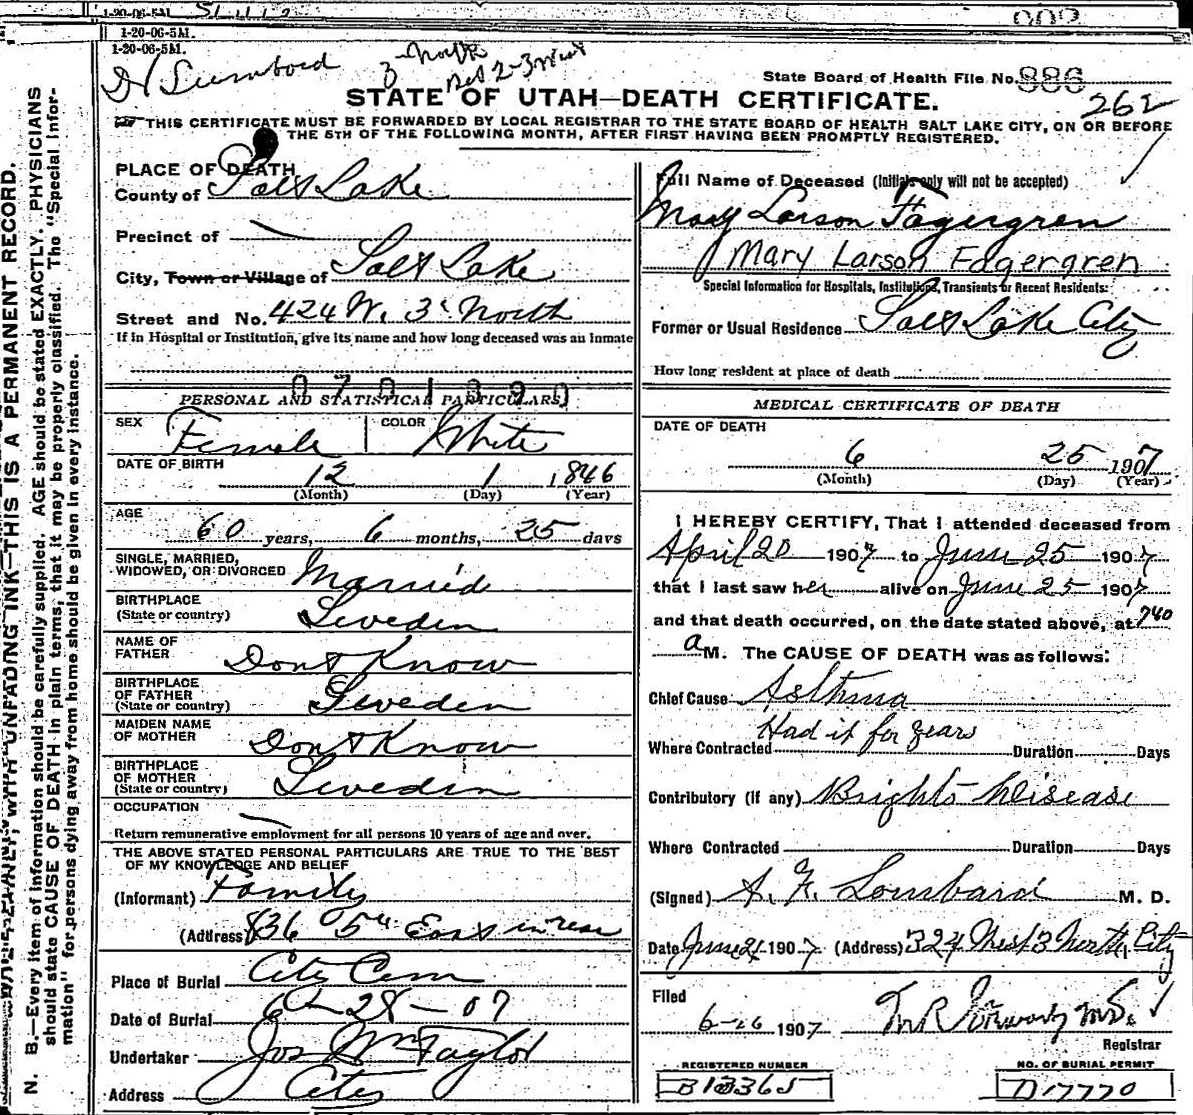 1-20-06-5M.
1-20-06-5M.
1-20-06-5M.
3 North
bet 2-3 West
State Board of Health File No. 886
262
STATE OF UTAH—DEATH CERTIFICATE.
THIS CERTIFICATE MUST BE FORWARDED BY LOCAL REGISTRAR TO THE STATE BOARD OF HEALTH SALT LAKE CITY, ON OR BEFORE
THE 5TH OF THE FOLLOWING MONTH, AFTER FIRST HAVING BEEN PROMPTLY REGISTERED.
PLACE OF DEATH
County of Salt Lake
Precinct of
City, Town or Village of Salt Lake
Street and No. 424 W. 3d North
If in Hospital or Institution, give its name and how long deceased was an inmate
0701390
PERSONAL AND STATISTICAL PARTICULARS
SEX Female COLOR White
DATE OF BIRTH
12 1 1846
(Month) (Day) (Year)
AGE
60 years, 6 months, 25 days
SINGLE, MARRIED,
WIDOWED, OR DIVORCED Married
BIRTHPLACE
(State or country) Sweden
NAME OF
FATHER Dont Know
BIRTHPLACE
OF FATHER
(State or country) Sweden
MAIDEN NAME
OF MOTHER Dont Know
BIRTHPLACE
OF MOTHER
(State or country) Sweden
OCCUPATION
Return remunerative employment for all persons 10 years of age and over.
THE ABOVE STATED PERSONAL PARTICULARS ARE TRUE TO THE BEST
OF MY KNOWLEDGE AND BELIEF
(Informant) Family
(Address) 836 5th East in rear
Place of Burial City Cem
Date of Burial 6-28-07
Undertaker Jos Wm Taylor
Address City
Full Name of Deceased (Initials only will not be accepted)
Mary Larson Fagergren
Mary Larson Fagergren
Special Information for Hospitals, Institutions, Transients or Recent Residents:
Former or Usual Residence Salt Lake City
How long resident at place of death
MEDICAL CERTIFICATE OF DEATH
DATE OF DEATH
6 25 1907
(Month) (Day) (Year)
I HEREBY CERTIFY, That I attended deceased from
April 20 1907 to June 25 1907
that I last saw her alive on June 25 1907
and that death occurred, on the date stated above, at 740
a M. The CAUSE OF DEATH was as follows:
Chief Cause Asthma
Had it for years
Where Contracted Duration Days
Contributory (if any) Brights Disease
Where Contracted Duration Days
(Signed) A. F. Lombard M. D.
Date June 1907 (Address) 324 West 3 North City
Filed
6-26 1907 M.D.
Registrar
REGISTERED NUMBER
B10365
NO. OF BURIAL PERMIT
D17770
N. B.—Every item of information should be carefully supplied. AGE should be stated EXACTLY. PHYSICIANS
should state CAUSE OF DEATH in plain terms, that it may be properly classified. The "Special Infor-
mation" for persons dying away from home should be given in every instance.
WRITE PLAINLY, WITH UNFADING INK—THIS IS A PERMANENT RECORD.